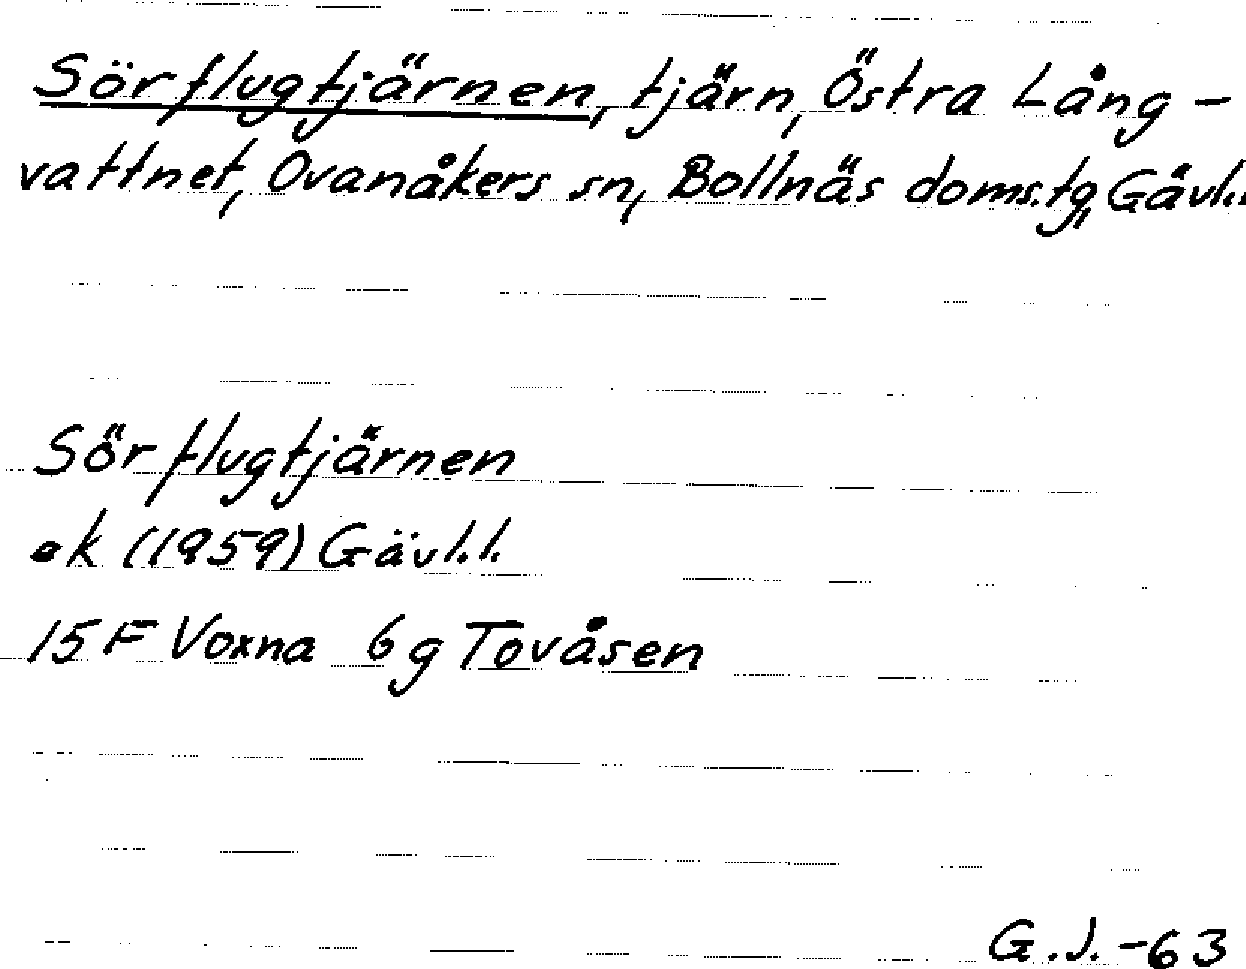 Sörflugtjärnen, tjärn, Östra Lång-
vattnet, Ovanåkers sn, Bollnäs doms.tg, Gävl.l.
Sörflugtjärnen
ek (1959) Gävl.l.
15 F Voxna 6 g Tovåsen
G.J. -63